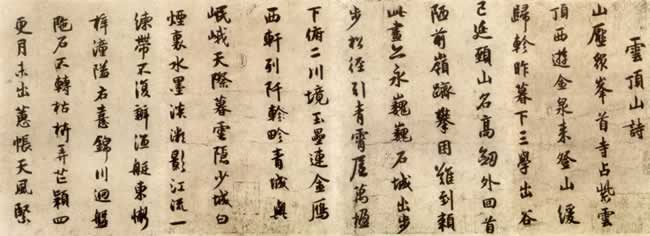 雲頂山詩
山壓衆峯首寺占紫雲
頂西遊金泉来登山緩
歸軫昨暮下三學出谷
已延頸山名高劔外回首
陋前嶺躋攀困難到賴
此晝亦永巍巍石城出步
步松徑引青霄屋萬楹
下俯二川境玉壘連金鴈
西軒列阡軫畛青城與
岷峨天際暮雲隱少城白
煙裏水墨淡微影江流一
練帶不復辨漁艇東懶
梓潼隘右憙錦川迴盤
陁石不轉枯柟弄芒穎四
更月未出蕙帳天風緊